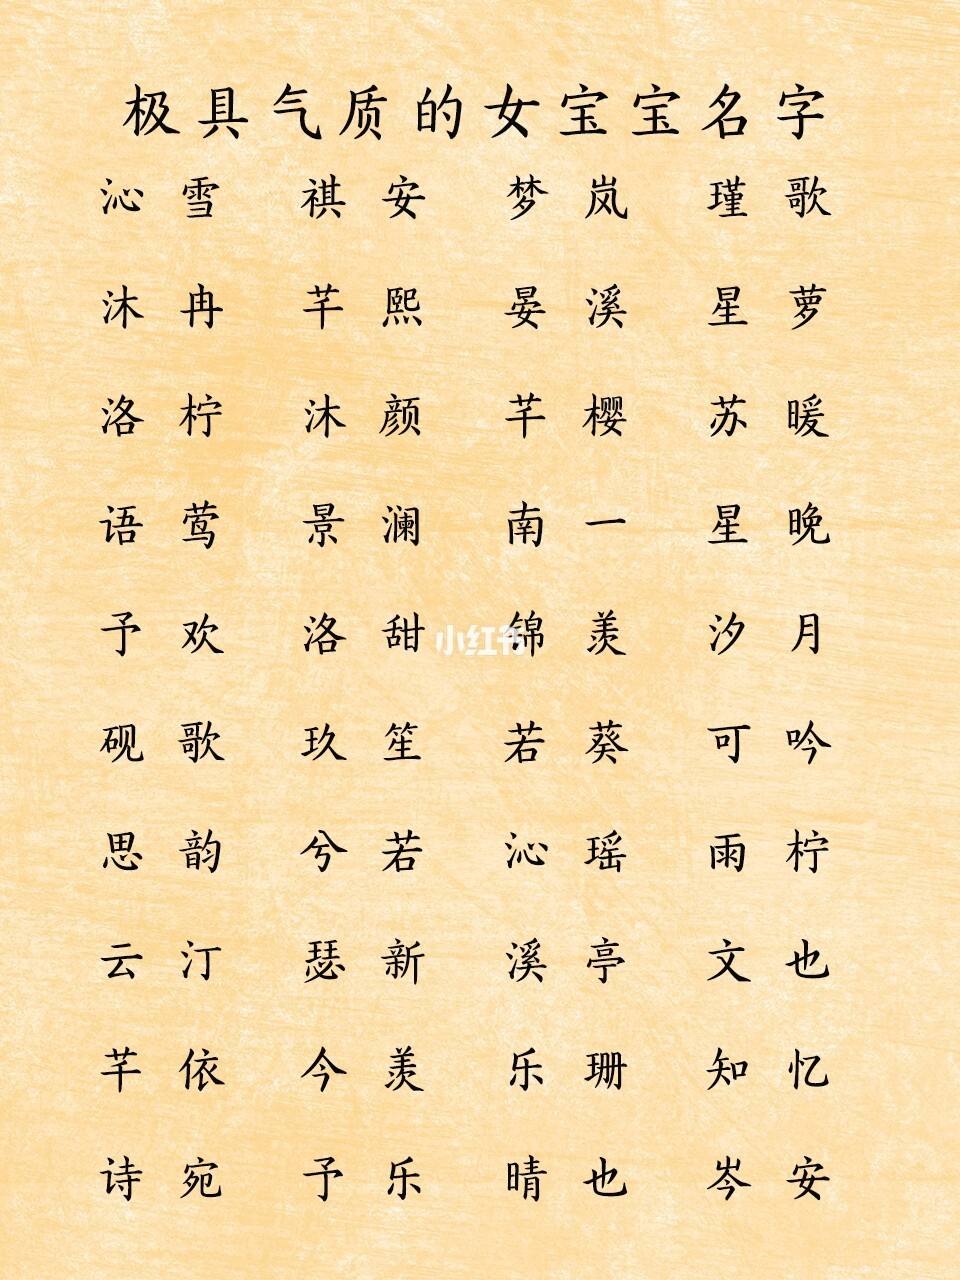 极具气质的女宝宝名字
沁雪 祺安 梦岚 瑾歌
沐冉 芊熙 晏溪 星萝
洛柠 沐颜 芊樱 苏暖
语莺 景澜 南一 星晚
予欢 洛甜 锦羡 汐月
小红书
砚歌 玖笙 若葵 可吟
思韵 兮若 沁瑶 雨柠
云汀 瑟新 溪亭 文也
芊依 今羡 乐珊 知忆
诗宛 予乐 晴也 岑安